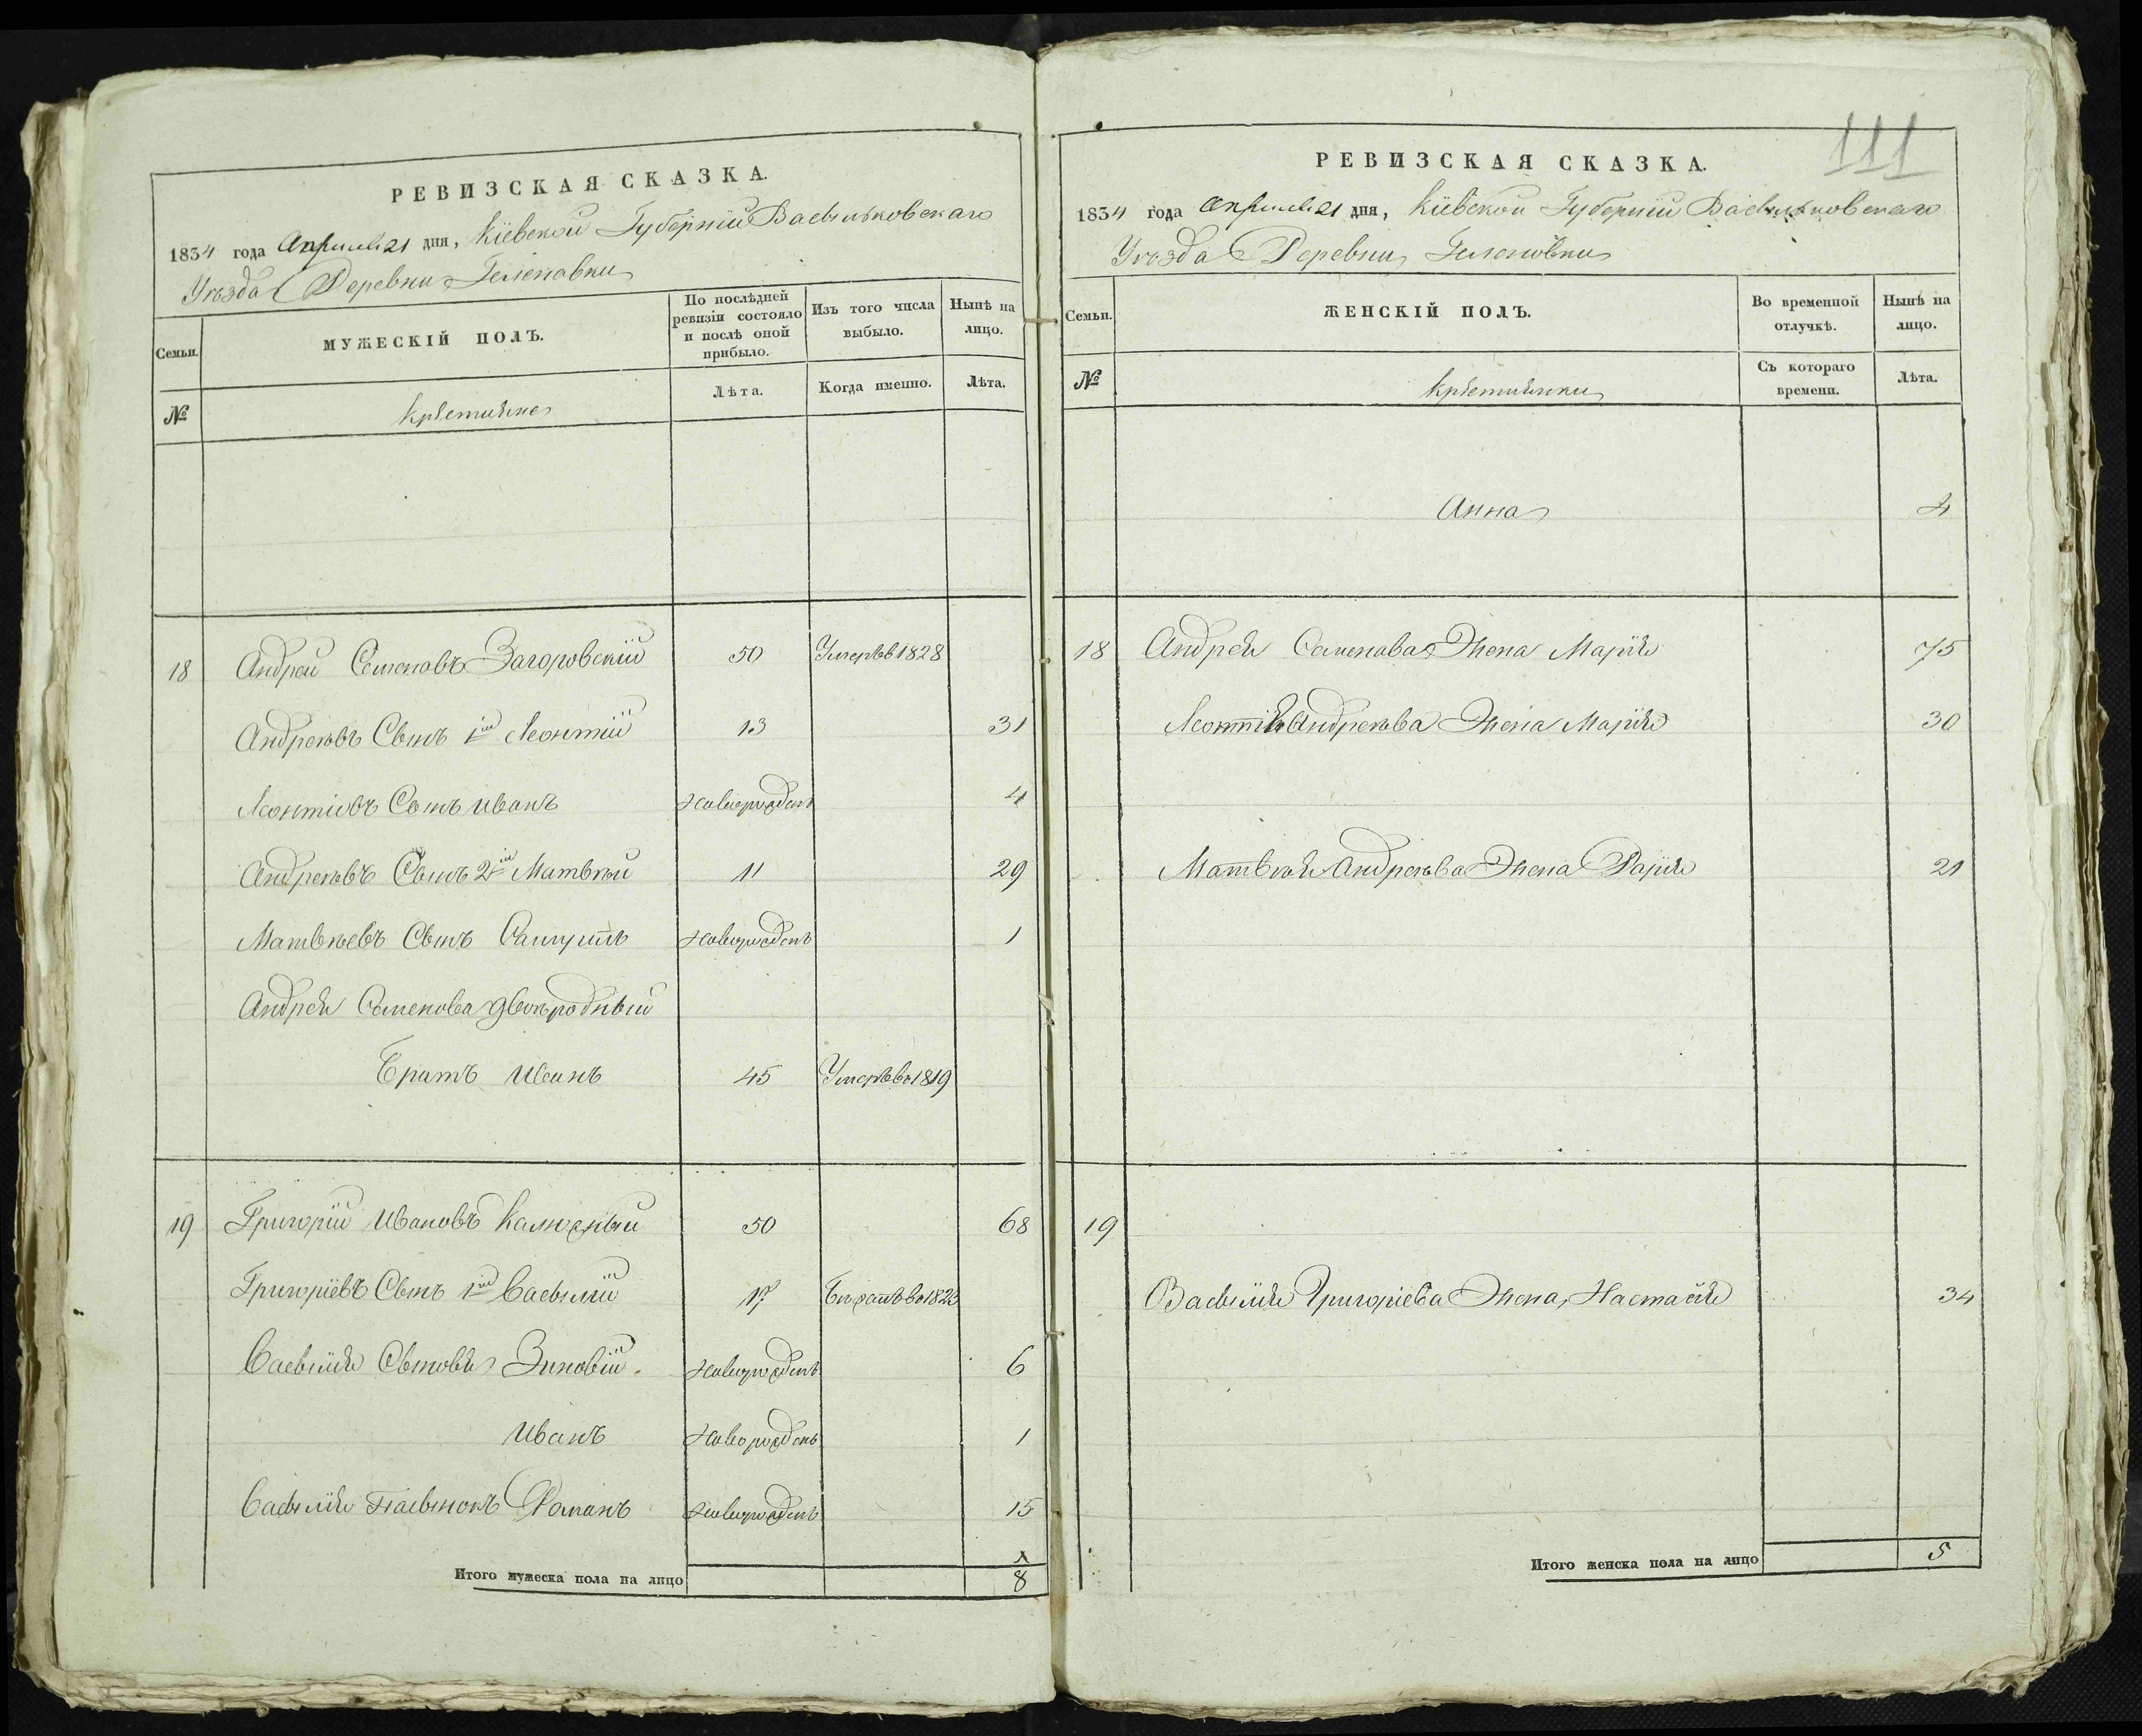 РЕВИЗСКАЯ СКАЗКА.
1834 года Апреля 21 дня, Кіевской Губерніи Васильковскаго
Уѣзда Деревни
Семьи.
МУЖЕСКІЙ ПОЛЪ.
По послѣдней ревизіи состояло и послѣ оной прибыло.
Изъ того числа выбыло.
Нынѣ на лицо.
№
Крестьяне
Лѣта.
Когда именно.
Лѣта.
18 Андрей Семеновъ Загоровскій 50 Умеръ в 1828
Андреевъ Сынъ 1й Леонтій 13 31
Леонтіевъ Сынъ Иванъ новорожденъ 4
Андреевъ Сынъ 2й Матвѣй 11 29
Матвѣевъ Сынъ новорожденъ 1
Андрея Семенова двоюродный
Братъ Иванъ 45 Умеръ в 1819
19 Григорій Ивановъ Калюжный 50 68
Григоріевъ Сынъ 1й Василій 17 1823
Василія Сыновья Зиновій новорожденъ 6
Иванъ новорожденъ 1
Василія Пасынокъ Романъ новорожденъ 15
Итого мужеска пола на лицо 8
111
РЕВИЗСКАЯ СКАЗКА.
1834 года Апреля 21 дня, Кіевской Губерніи Васильковскаго
Уѣзда Деревни
Семьи.
ЖЕНСКІЙ ПОЛЪ.
Во временной отлучкѣ.
Нынѣ на лицо.
№
Крестьянки
Съ котораго времени.
Лѣта.
Анна 4
18 Андрея Семенова Жена Марія 75
Леонтія Андреева Жена Марія 30
Матвѣя Андреева Жена 21
19
Василія Григоріева Жена Настасія 34
Итого женска пола на лицо 5